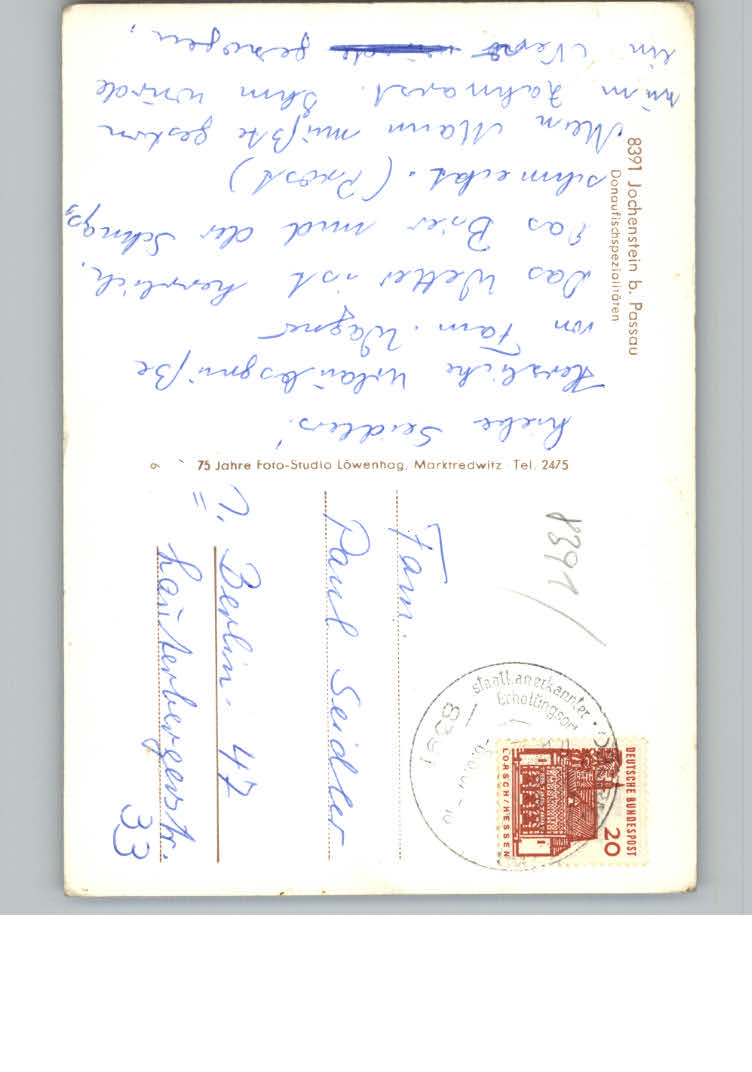 8391 Jochenstein b. Passau
Donaufischspezialitäten
Liebe Seidlers!
Herzliche Urlaubsgrüße
von Fam. Wagner
Das Wetter ist herrlich,
das Bier und der Schnaps
schmeckt. (Prost)
Mein Mann mußte gestern
zum Zahnarzt. Ihm wurde
ein Nerv gezogen,
75 Jahre Foto-Studio Löwenhag, Marktredwitz Tel. 2475
8391/
Fam.
Paul Seidler
1 Berlin - 47
Lauterbergerstr.
33
staatl. anerkannter
Erholungsort
DEUTSCHE BUNDESPOST
20
LORSCH/HESSEN